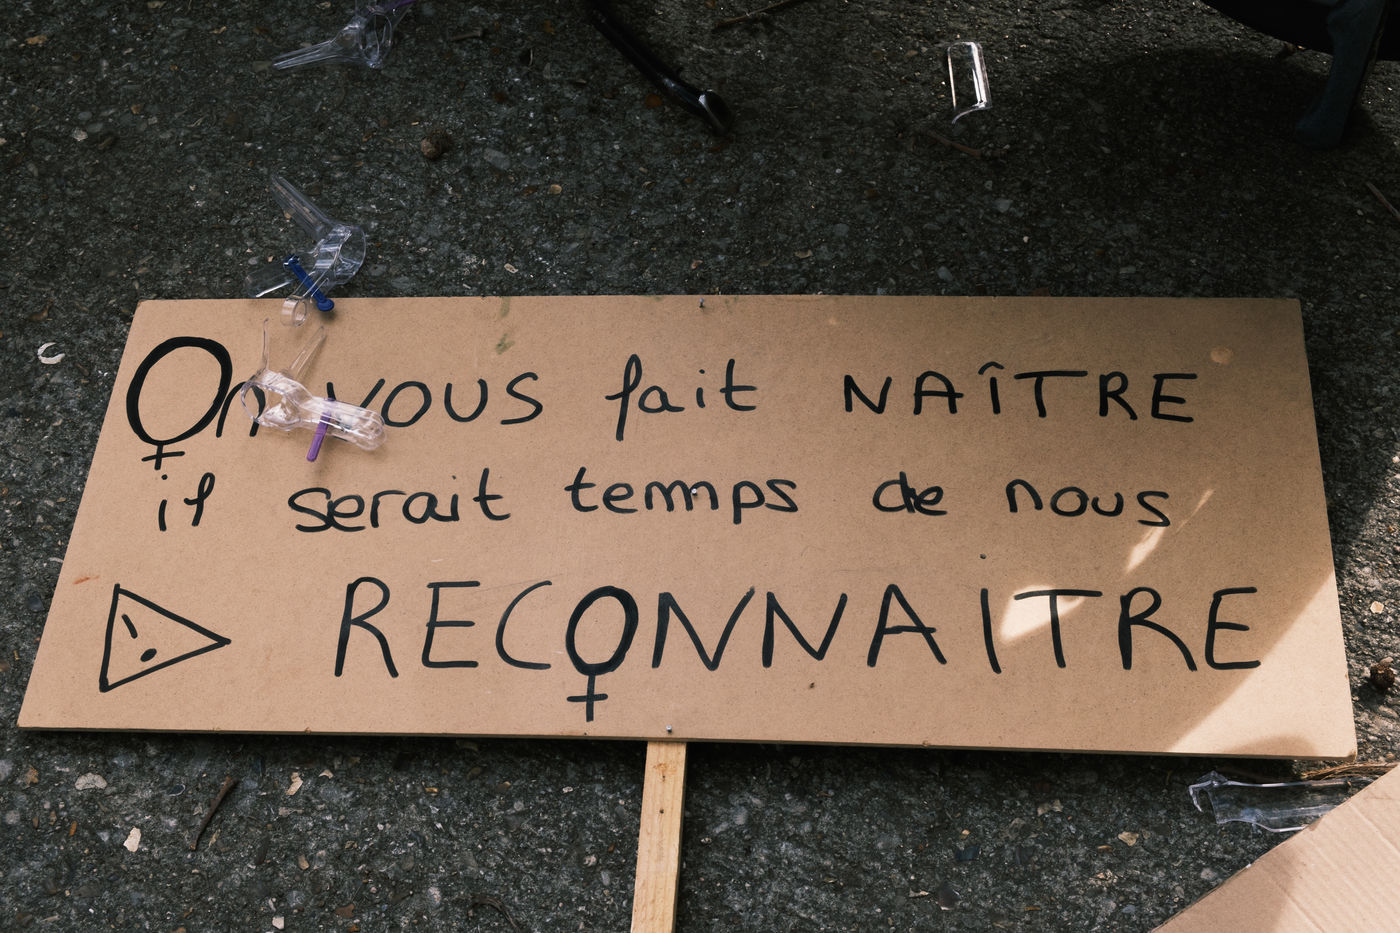 On VOUS fait NAÎTRE
il serait temps de nous
RECONNAITRE